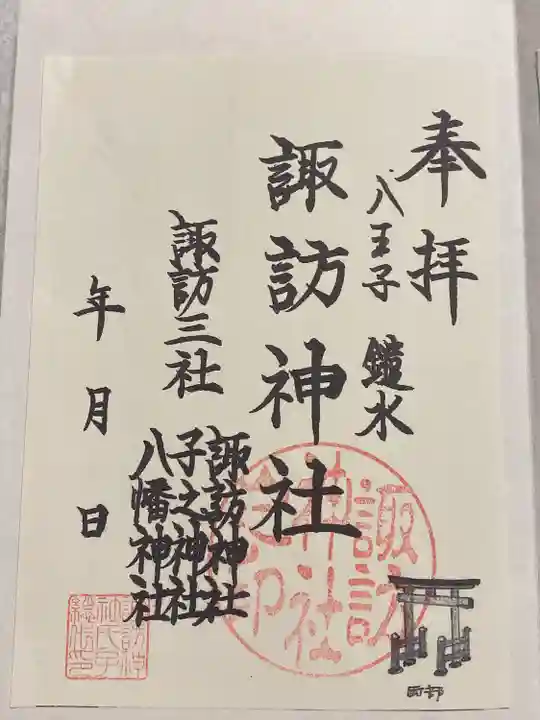 奉拝
八王子 鑓水
諏訪神社
諏訪三社
諏訪神社
子之神社
八幡神社
年 月 日
諏訪
神社